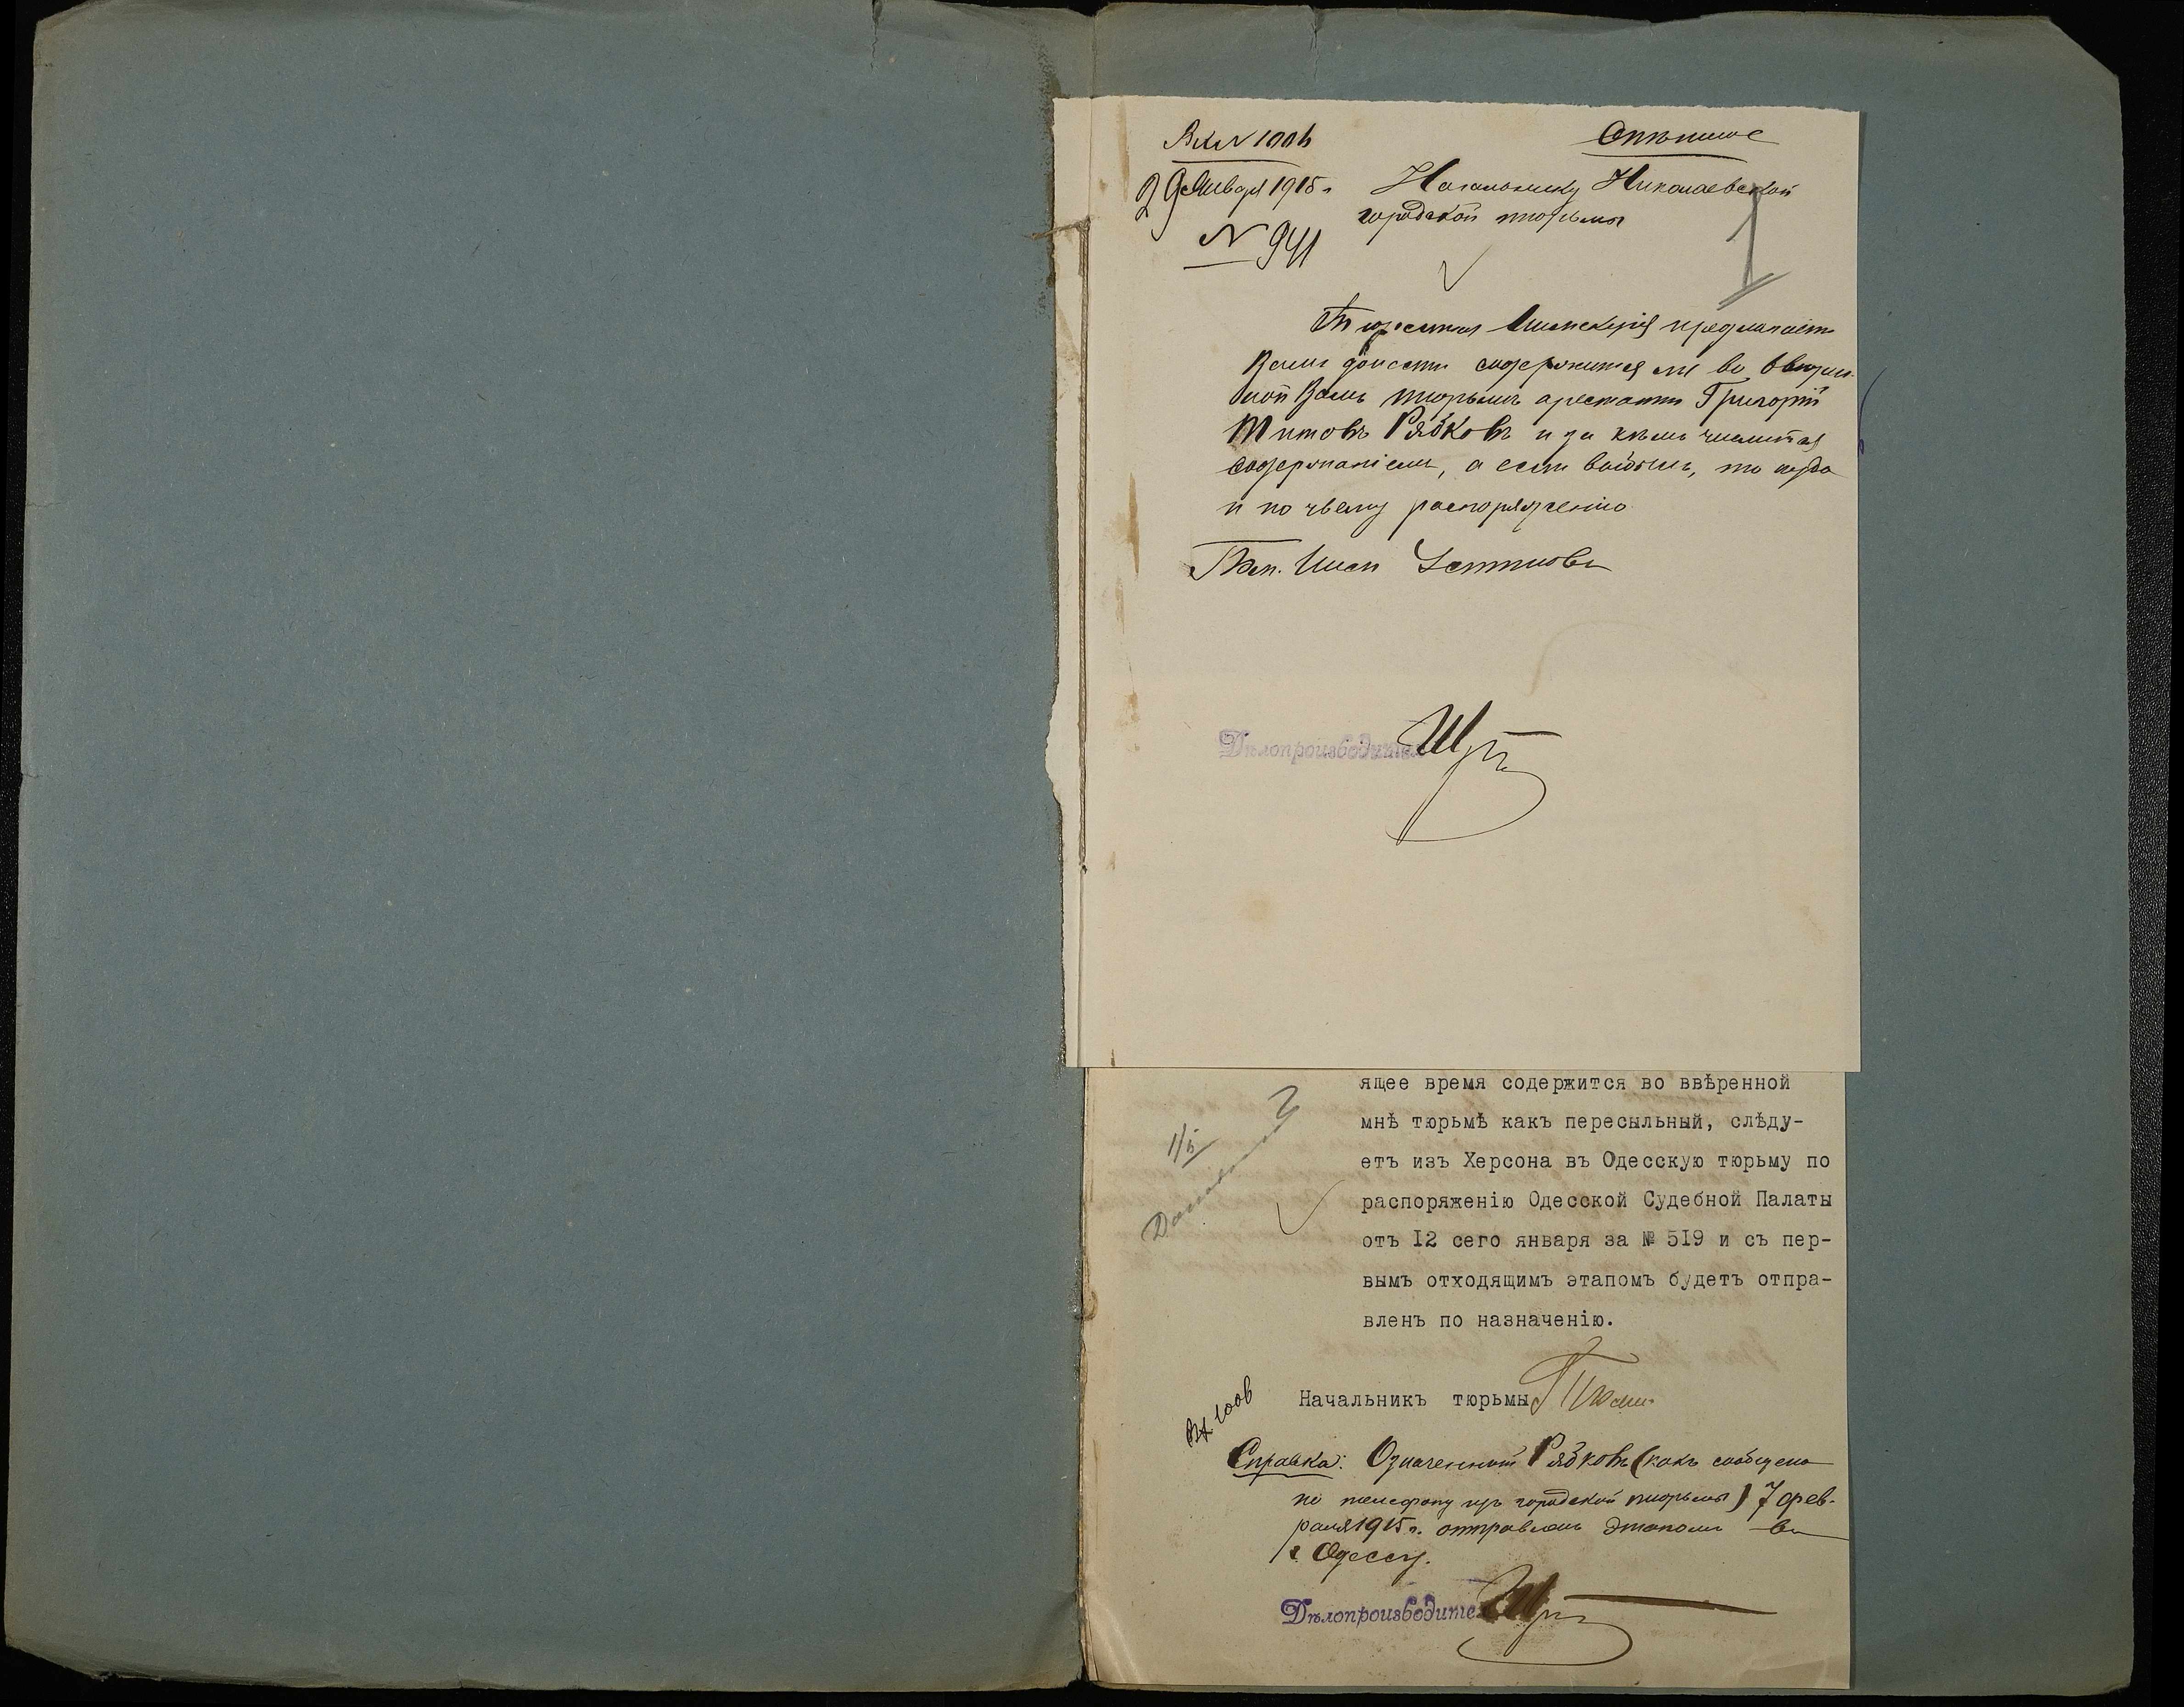 Вх № 1006
Спѣшное
29 Января 1915 г.
№ 941
Начальнику Николаевской
городской тюрьмы
1
Тюремная Инспекція предлагаетъ
Вамъ донести содержится ли во ввѣрен-
ной Вамъ тюрьмѣ арестантъ Григорій
Титовъ Рябковъ и за кѣмъ числится
содержаніемъ, а если выбылъ, то куда
и по чьему распоряженію
Тюр. Инсп.
Дѣлопроизводитель
ящее время содержится во ввѣренной
мнѣ тюрьмѣ какъ пересыльный, слѣду-
етъ изъ Херсона въ Одесскую тюрьму по
распоряженію Одесской Судебной Палаты
отъ I2 сего января за № 5I9 и съ пер-
вымъ отходящимъ этапомъ будетъ отпра-
вленъ по назначенію.
Начальникъ тюрьмы
Вх 1006
Справка: Означенный Рябковъ (какъ сообщено
по телефону изъ городской тюрьмы) 7 фев-
раля 1915 г. отправленъ этапомъ въ
г. Одессу.
Дѣлопроизводитель